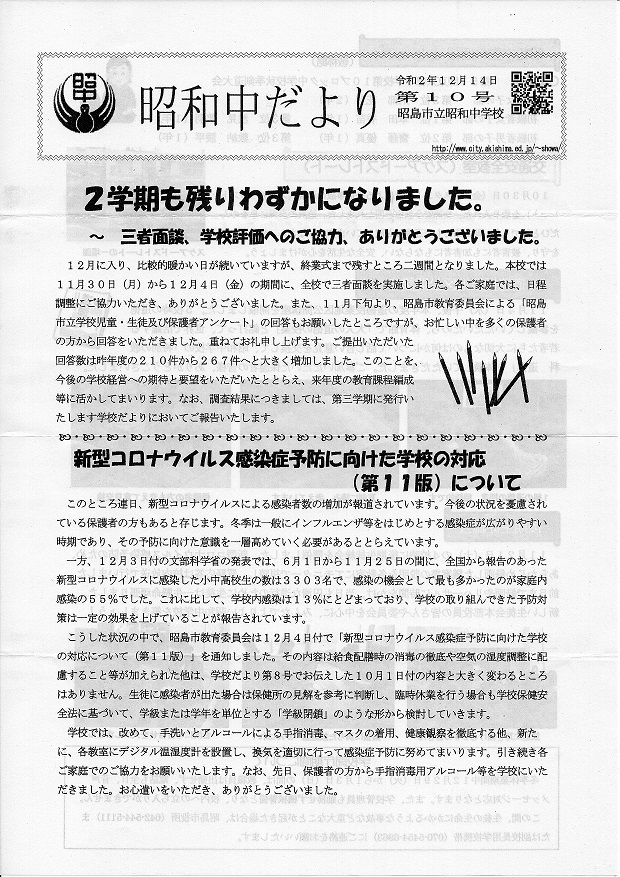 昭
中
昭和中だより
令和2年12月14日
第10号
昭島市立昭和中学校
http://www.city.akishima.ed.jp/~showa/
2学期も残りわずかになりました。
～ 三者面談、学校評価へのご協力、ありがとうございました。
12月に入り、比較的暖かい日が続いていますが、終業式まで残すところ二週間となりました。本校では
11月30日（月）から12月4日（金）の期間に、全校で三者面談を実施しました。各ご家庭では、日程
調整にご協力いただき、ありがとうございました。また、11月下旬より、昭島市教育委員会による「昭島
市立学校児童・生徒及び保護者アンケート」の回答もお願いしたところですが、お忙しい中を多くの保護者
の方から回答をいただきました。重ねてお礼申し上げます。ご提出いただいた
回答数は昨年度の210件から267件へと大きく増加しました。このことを、
今後の学校経営への期待と要望をいただいたととらえ、来年度の教育課程編成
等に活かしてまいります。なお、調査結果につきましては、第三学期に発行い
たします学校だよりにおいてご報告いたします。
新型コロナウイルス感染症予防に向けた学校の対応
（第11版）について
このところ連日、新型コロナウイルスによる感染者数の増加が報道されています。今後の状況を憂慮され
ている保護者の方もあると存じます。冬季は一般にインフルエンザ等をはじめとする感染症が広がりやすい
時期であり、その予防に向けた意識を一層高めていく必要があるととらえています。
一方、12月3日付の文部科学省の発表では、6月1日から11月25日の間に、全国から報告のあった
新型コロナウイルスに感染した小中高校生の数は3303名で、感染の機会として最も多かったのが家庭内
感染の55％でした。これに比して、学校内感染は13％にとどまっており、学校の取り組んできた予防対
策は一定の効果を上げていることが報告されています。
こうした状況の中で、昭島市教育委員会は12月4日付で「新型コロナウイルス感染症予防に向けた学校
の対応について（第11版）」を通知しました。その内容は給食配膳時の消毒の徹底や空気の湿度調整に配
慮すること等が加えられた他は、学校だより第8号でお伝えした10月1日付の内容と大きく変わるところ
はありません。生徒に感染者が出た場合は保健所の見解を参考に判断し、臨時休業を行う場合も学校保健安
全法に基づいて、学級または学年を単位とする「学級閉鎖」のような形から検討していきます。
学校では、改めて、手洗いとアルコールによる手指消毒、マスクの着用、健康観察を徹底する他、新た
に、各教室にデジタル温湿度計を設置し、換気を適切に行って感染症予防に努めてまいります。引き続き各
ご家庭でのご協力をお願いいたします。なお、先日、保護者の方から手指消毒用アルコール等を学校にいた
だきました。お心遣いをいただき、ありがとうございました。